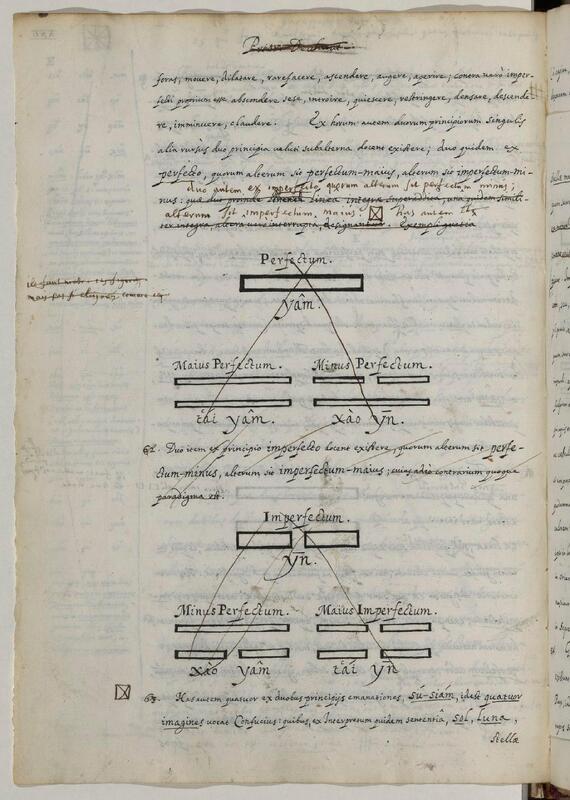 foras, movere, dilatare, rarefacere, ascendere, augere, aperire; contra verò imper-
fecti proprium esse abscondere sese, introire, quiescere, restringere, densare, descende-
re, imminuere, claudere. Ex horum autem duorum principiorum singulis
alia rursùs duo principia veluti subalterna docent existere; duo quidem ex
perfecto, quorum alterum sit perfectum-maius, alterum sit imperfectum-mi-
duo autem ex imperfecto quorum alterum sit perfectum minus;
nus: quæ duo proinde linea integra superaddita, una quidem simili-
alterum sit imperfectum maius. has autem
ter integra, altera verò interrupta, designantur. Exempli gratia
Perfectum.
yâm.
Maius Perfectum. Minus Perfectum.
t'ái yâm. xào ȳn.
62. Duo item ex principio imperfecto docent existere, quorum alterum sit perfe-
ctum-minus, alterum sit imperfectum-maius; cuius adeò contrarium quoque
paradigma est.
Imperfectum.
ȳn.
Minus Perfectum. Maius Imperfectum.
xào yâm t'ái ȳn
63. Has autem quatuor ex duobus principijs emanationes, sú-siám, idest quatuor
imagines vocat Confucius: quibus, ex Interpretum quidem sententiâ, sol, Luna,
stellæ